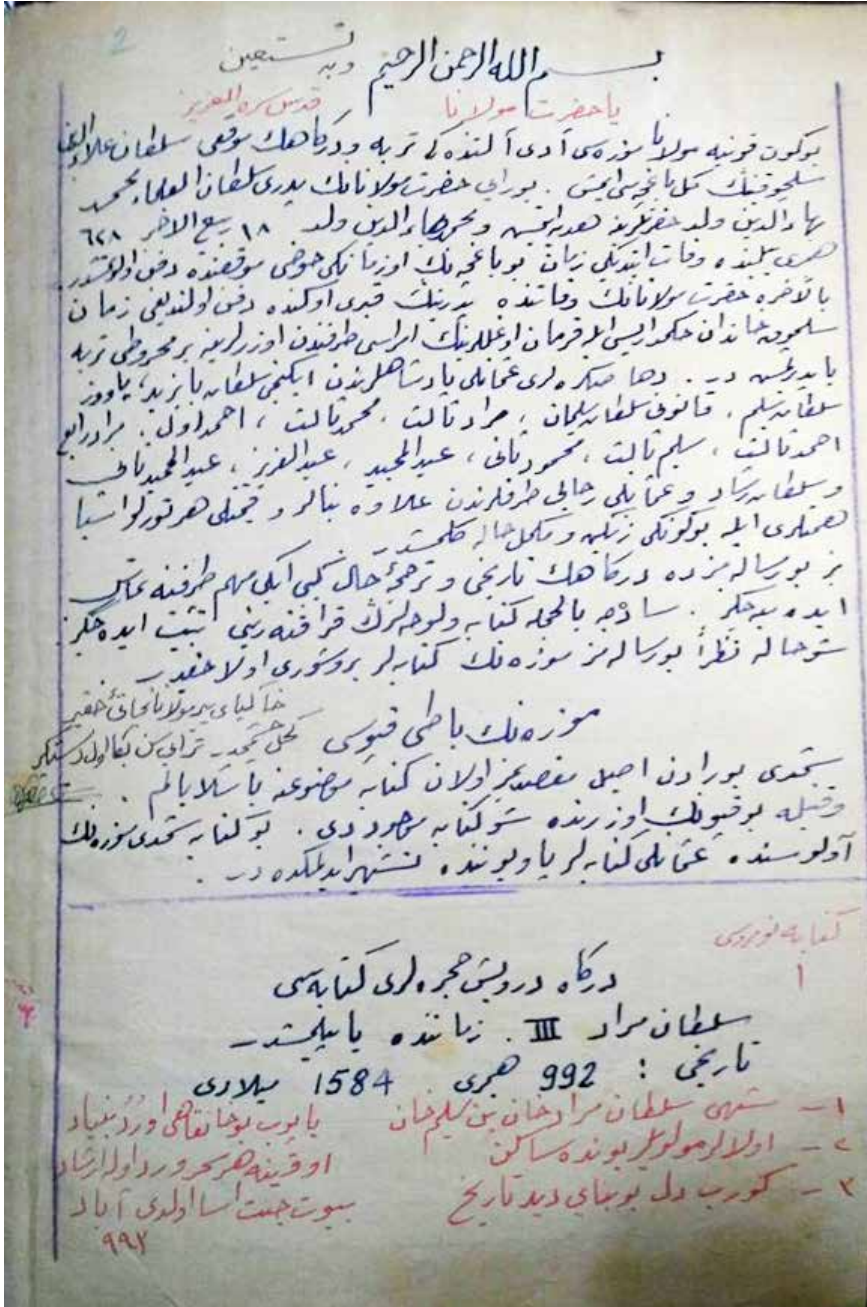 2
بسم الله الرحمن الرحيم وبه نستعين
يا حضرت مولانا قدس سره العزيز
بوكون قونيه مولانا موزه‌سى آدى آلتنده‌كى تربه و دركاهك موقعى سلطان علاءالدين
سلچوقينك كل باغچه‌سى ايمش . بورايى حضرت مولانانك پدرى سلطان العلماء محمد
بهاءالدين ولد حضرتلرينه هديه ايتمش و محمد بهاءالدين ولد ١٨ ربيع الاخر ٦٢٨
هجرى ييلنده وفات ايتديكى زمان بو باغچه‌نك اوزمانكى حوضى موقعنده دفن اولنمشدر
بالآخره حضرت مولانانك وفاتنده پدرينك قدمى اوكنده دفن اولنديغى زمان
سلچوق خاندان حكمداريسى ايله قرمان اوغللرينك امراسى طرفندن اوزرلرينه بر مخروطى تربه
ياپديرلمش در . دها صكره‌لرى عثمانلى پادشاهلرندن ايكنجى سلطان بايزيد، ياووز
سلطان سليم ، قانونى سلطان سليمان ، مراد ثالث ، محمد ثالث ، احمد اول ، مراد رابع
احمد ثالث ، سليم ثالث ، محمود ثانى ، عبدالمجيد ، عبدالعزيز ، عبدالحميد ثانى
و سلطان رشاد و عثمانلى رجالى طرفلرندن علاوه بنالر و قيمتلى هر تورلو اشيا
همتلرى ايله بوكونكى زنكين و مكمل حاله كلمشدر
بز بو رساله‌مزده دركاهك تاريخى و ترجمۀ حال كبى ايكى مهم طرفنه تماس
ايده‌ميه‌جكز . ساده‌جه بالجمله كتابه و لوحه‌لرك قرائتنى تثبيت ايده‌جكز
شو حاله نظراً بو رساله‌مز موزه‌نك كتابه‌لر بروشورى اولاجقدر .
خاكپاى پير مولانا
موزه‌نك باطى قپوسى
شيمدى بورادن اصيل مقصديمز اولان كتابه موضوعنه باشلايالم .
وقتيله بو قپونك اوزرنده شو كتابه موجود دى . بو كتابه شيمدى موزه‌نك
آولوسنده عثمانلى كتابه‌لر پاويونندە تشهير ايديلمكده در .
كتابه نومروسى
١
دركاه درويش حجره‌لرى كتابه‌سى
سلطان مراد III . زماننده ياپيلمشدر
تاريخى : 992 هجرى 1584 ميلادى
١ – شهى سلطان مراد خان بن سليم خان ياپوب بو خانقاهى اوردى بنياد
٢ – اولالر مولويلر بونده ساكن اوقينه هر سحر ورد اوله ارشاد
٣ – كورب دل بو بنايى ديدى تاريخ بيوت جنت آسا اولدى آباد
٩٩٢